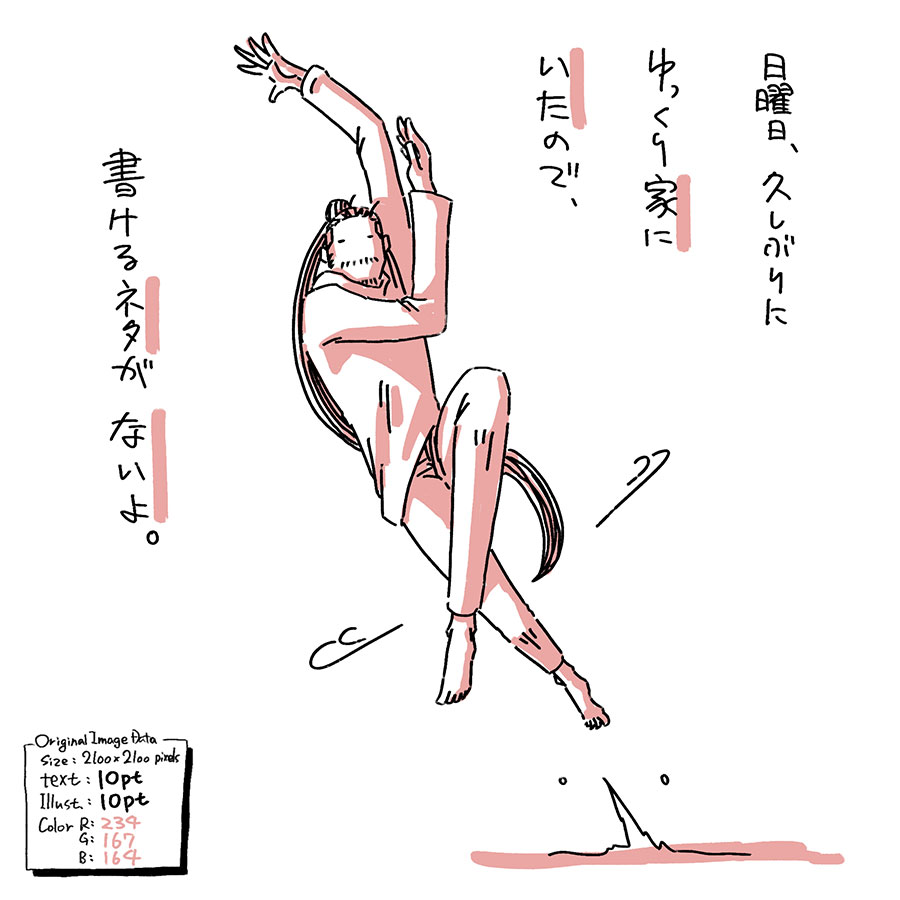 日曜日、久しぶりに
ゆっくり家に
いたので、
書けるネタが ないよ。
Original Image Data
Size : 2100×2100 pixels
text : 10pt
Illust. : 10pt
Color R: 234
G: 167
B: 164